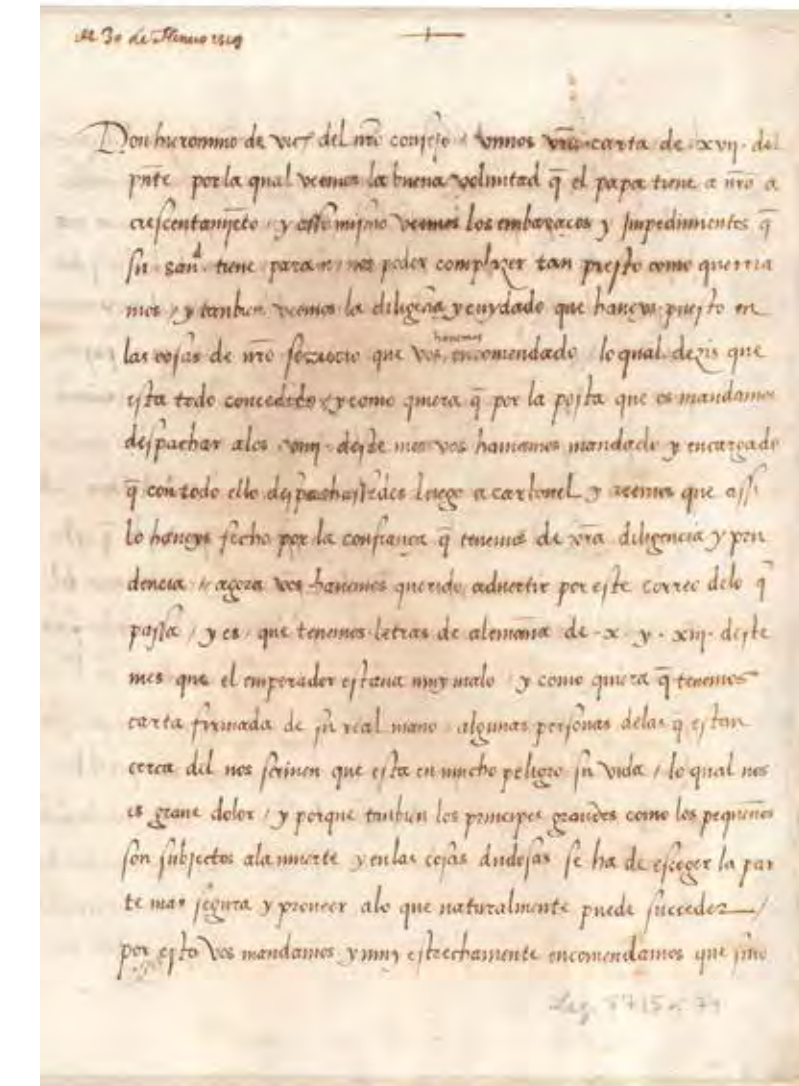 A 30 de Henero 1519
Don hieronimo de vic del nr̃o consejo / vimos vr̃a carta de .xvij. del
pn̄te por la qual veemos la buena voluntad q̄ el papa tiene a nr̃o a
crescentamj̄eto / y assi mismo veemos los embaraços y Jmpedimientos q̄
su san.d tiene para nos poder complazer tan presto como querria
mos / y tanbien veemos la diligēcia y cuydado que haueys puesto en
las cosas de nr̃o que vos hauemos encomendado / lo qual dezis que
esta todo concedido / y como quiera q̄ por la posta que os mandamos
despachar alos deste mes vos hauiamos mandado y encargado
q̄ con todo ello despachassedes luego a carbonel y veemos que assi
lo haueys fecho por la confiança q̄ tenemos de vr̃a diligencia y pru
dencia // agora vos hauemos querido aduertir por este correo delo q̄
passa / y es / que tenemos letras de alemaña de .x. y .xiij. deste
mes que el emperador estaua muy malo / y como quiera q̄ tenemos
carta firmada de su real mano / algunas personas delas q̄ estan
cerca del nos scriuen que esta en mucho peligro su vida / lo qual nos
es graue dolor / y porque tanbien los principes grandes como los pequeños
son subjectos ala muerte y enlas cosas dudosas se ha de escoger la par
te mas segura y proueer alo que naturalmente puede succeder /
por esto vos mandamos y muy estrechamente encomendamos que sino
Leg. 8715 n 74